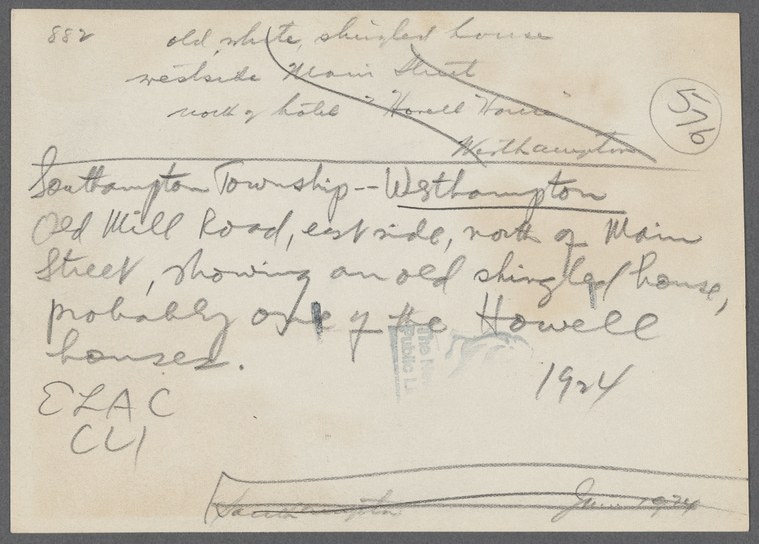 882
old, white, shingled house
westside Main Street
north of hotel "Howell House"
Westhampton
576
Southampton Township--Westhampton
Old Mill Road, east side, north of Main
Street, showing an old shingled house,
probably one of the Howell
houses.
1924
ELAC
CLI
The Ne
Public Li
Southampton 1924